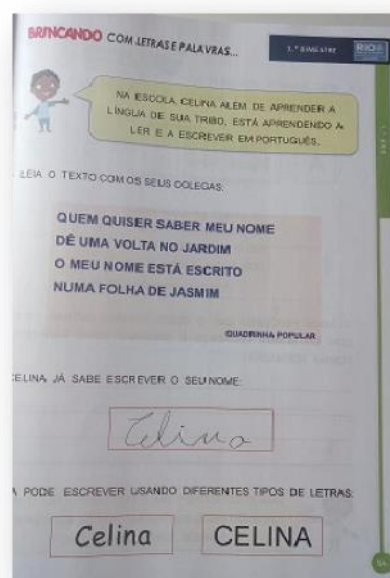 BRINCANDO COM LETRAS E PALAVRAS...
1.º BIMESTRE
RIO
NA ESCOLA, CELINA ALÉM DE APRENDER A
LÍNGUA DE SUA TRIBO, ESTÁ APRENDENDO A
LER E A ESCREVER EM PORTUGUÊS.
LEIA O TEXTO COM OS SEUS COLEGAS:
QUEM QUISER SABER MEU NOME
DÊ UMA VOLTA NO JARDIM
O MEU NOME ESTÁ ESCRITO
NUMA FOLHA DE JASMIM
QUADRINHA POPULAR
CELINA JÁ SABE ESCREVER O SEU NOME:
Celina
A PODE ESCREVER USANDO DIFERENTES TIPOS DE LETRAS:
Celina
CELINA